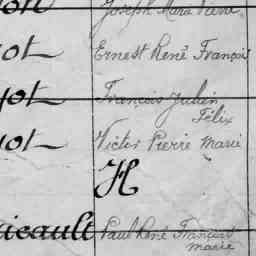 Joseph Marie
ot Ernest René François
ot François Julien
Félix
ot Victor Pierre Marie
H
icault Paul René François
marie